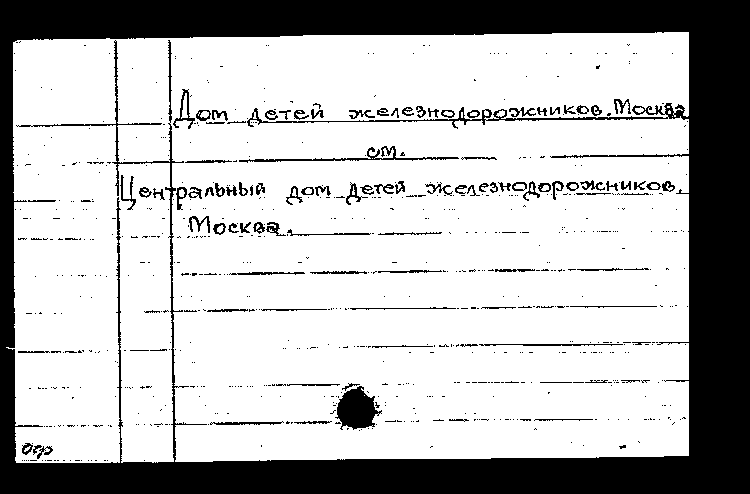 Дом детей железнодорожников. Москва
см.
Центральный дом детей железнодорожников.
Москва.